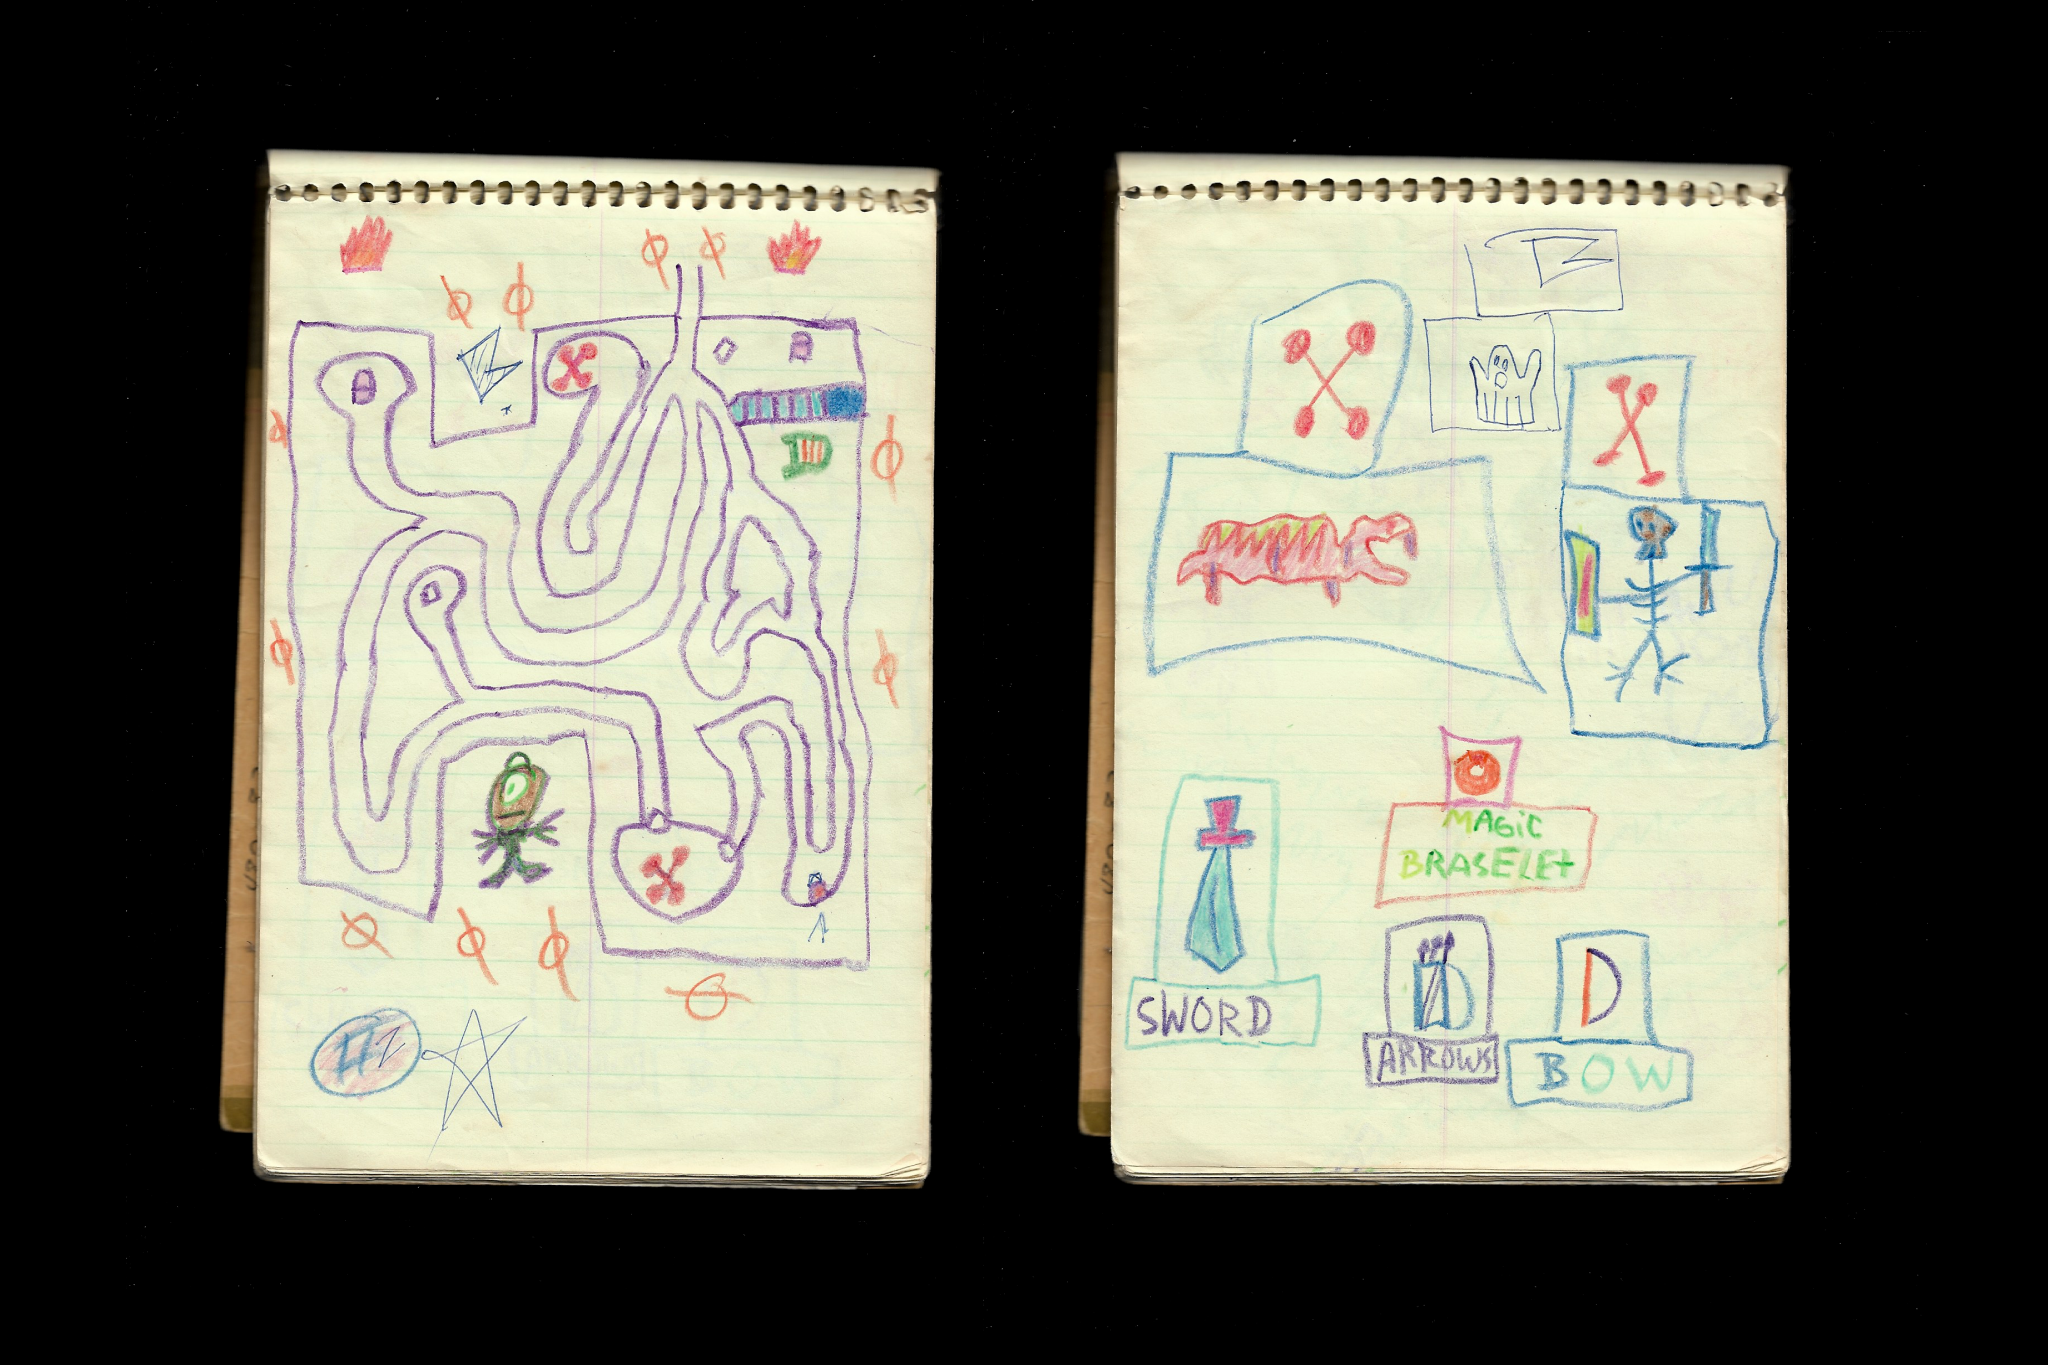 #1
MAGiC
BRASELEt
SWORD
ARROWS
BOW